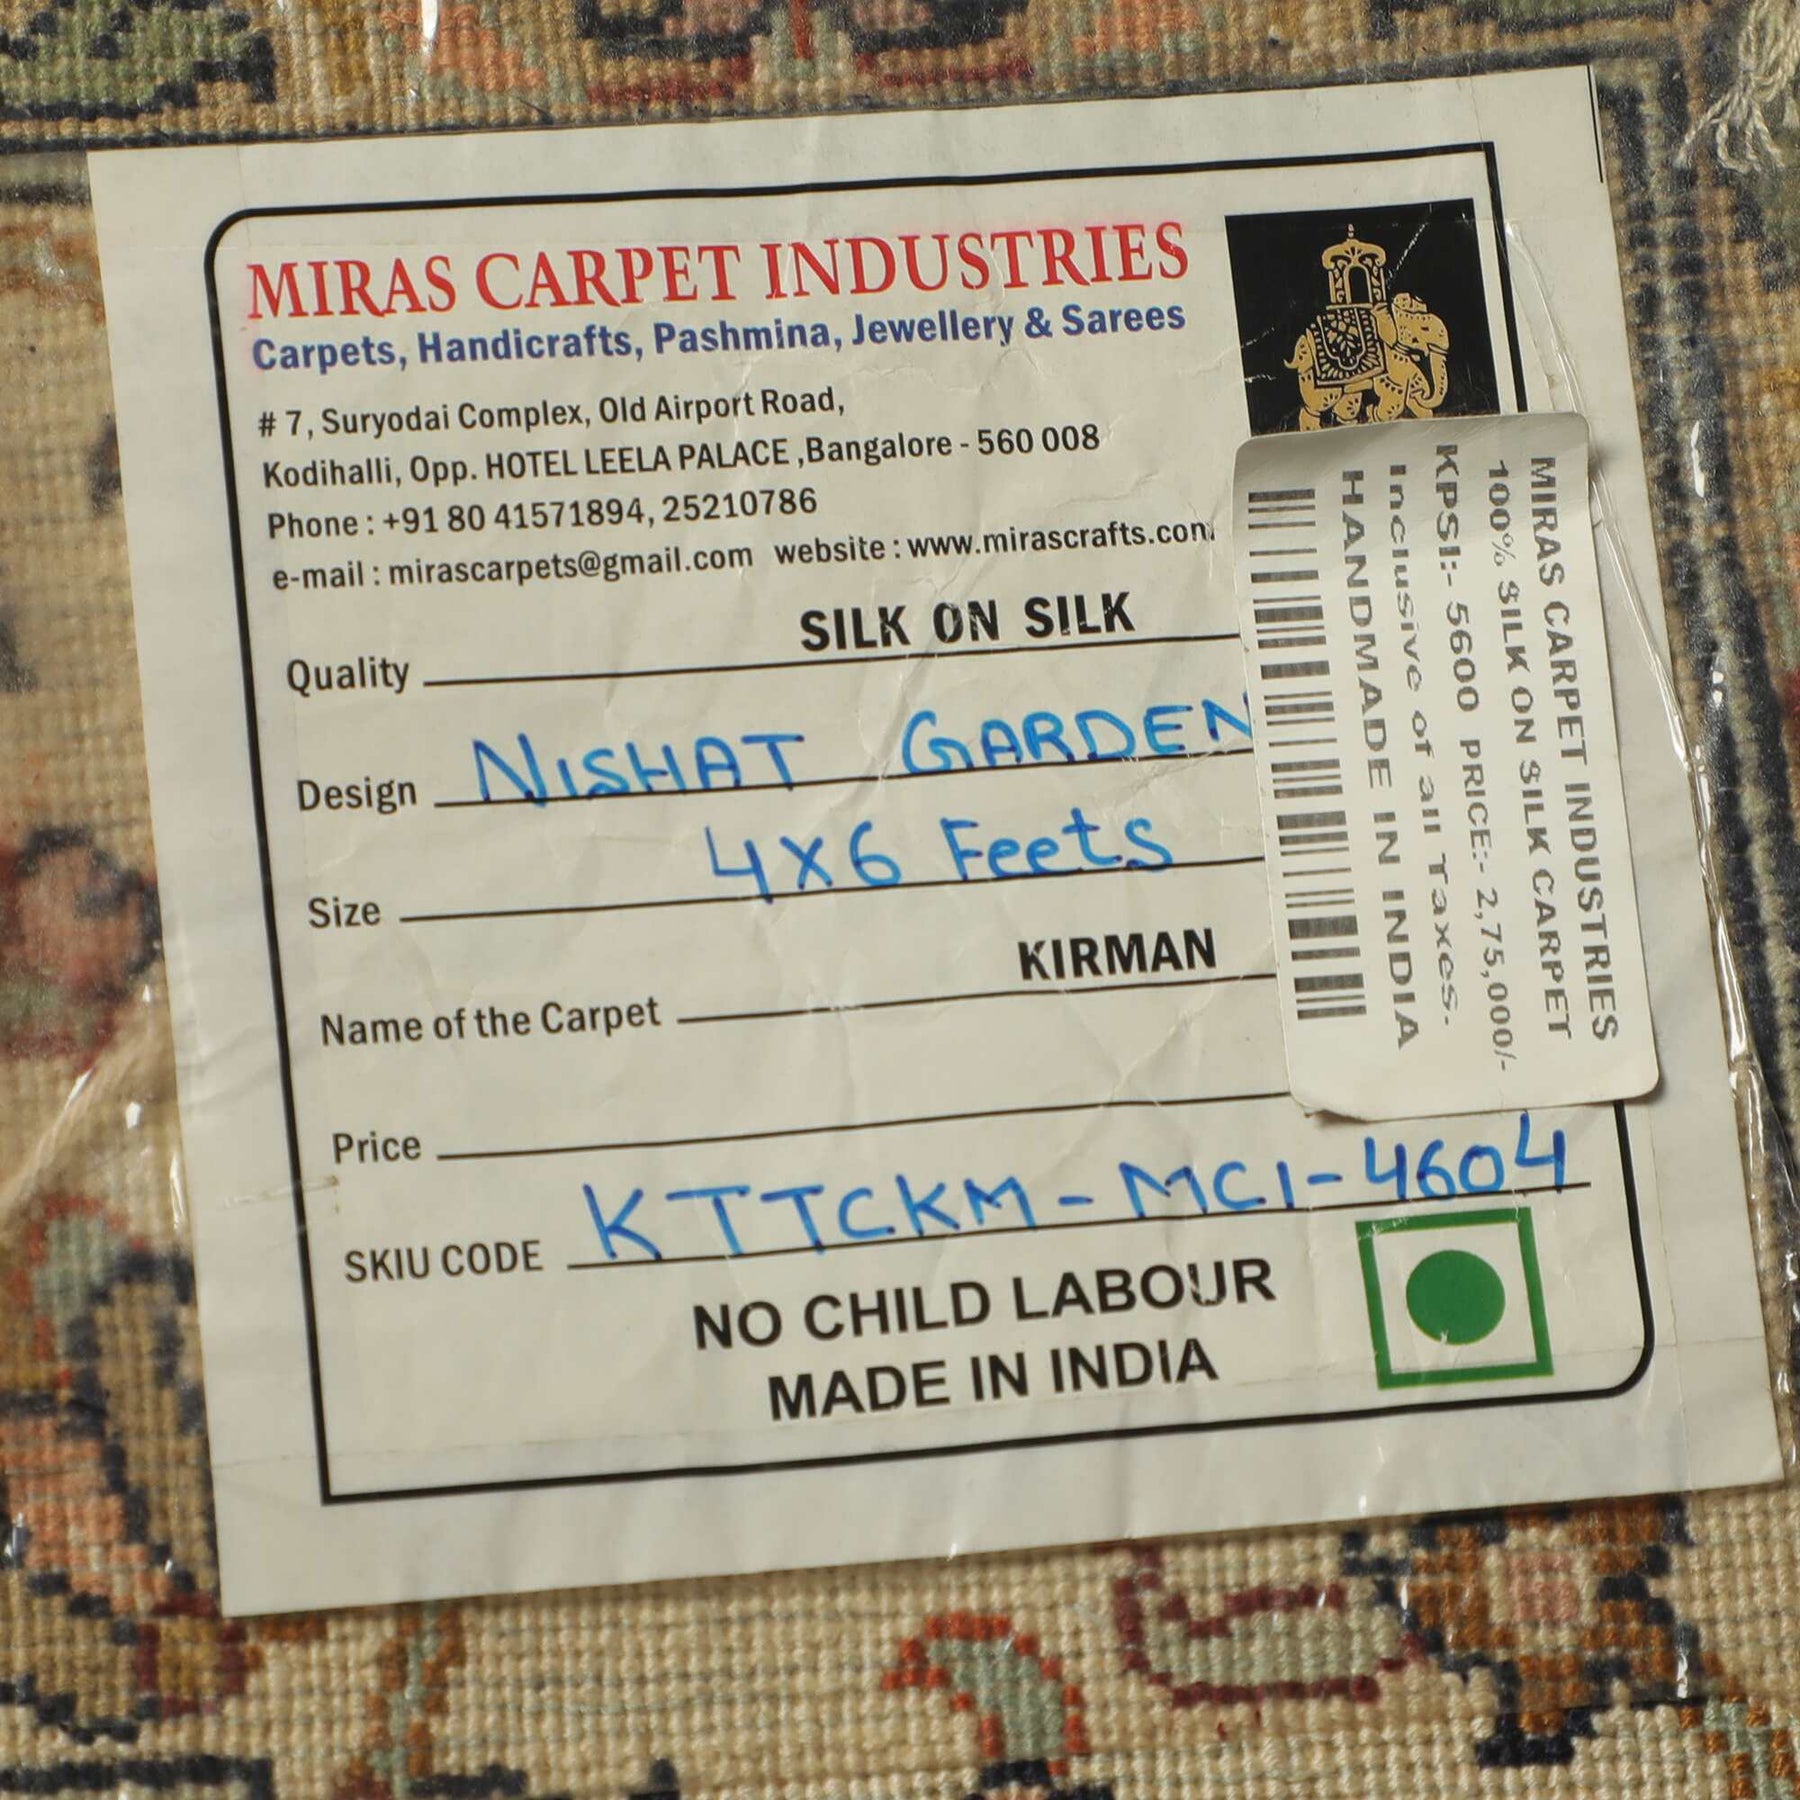 MIRAS CARPET INDUSTRIES
Carpets, Handicrafts, Pashmina, Jewellery & Sarees
# 7, Suryodai Complex, Old Airport Road,
Kodihalli, Opp. HOTEL LEELA PALACE ,Bangalore - 560 008
Phone : +91 80 41571894, 25210786
e-mail : mirascarpets@gmail.com website : www.mirascrafts.com
Quality SILK ON SILK
Design NISHAT GARDEN
Size 4X6 Feets
Name of the Carpet KIRMAN
Price
SKIU CODE KTTCKM-MCI-4604
NO CHILD LABOUR
MADE IN INDIA
MIRAS CARPET INDUSTRIES
100% SILK ON SILK CARPET
KPSI:- 5600 PRICE:- 2,75,000/-
Inclusive of all Taxes.
HANDMADE IN INDIA